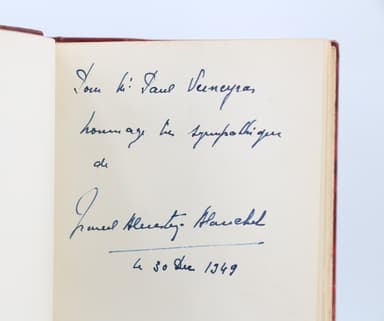 Pour Mr Paul Verneyras
hommage très sympathique
de
Marcel Blanchet
le 30 Dec 1949